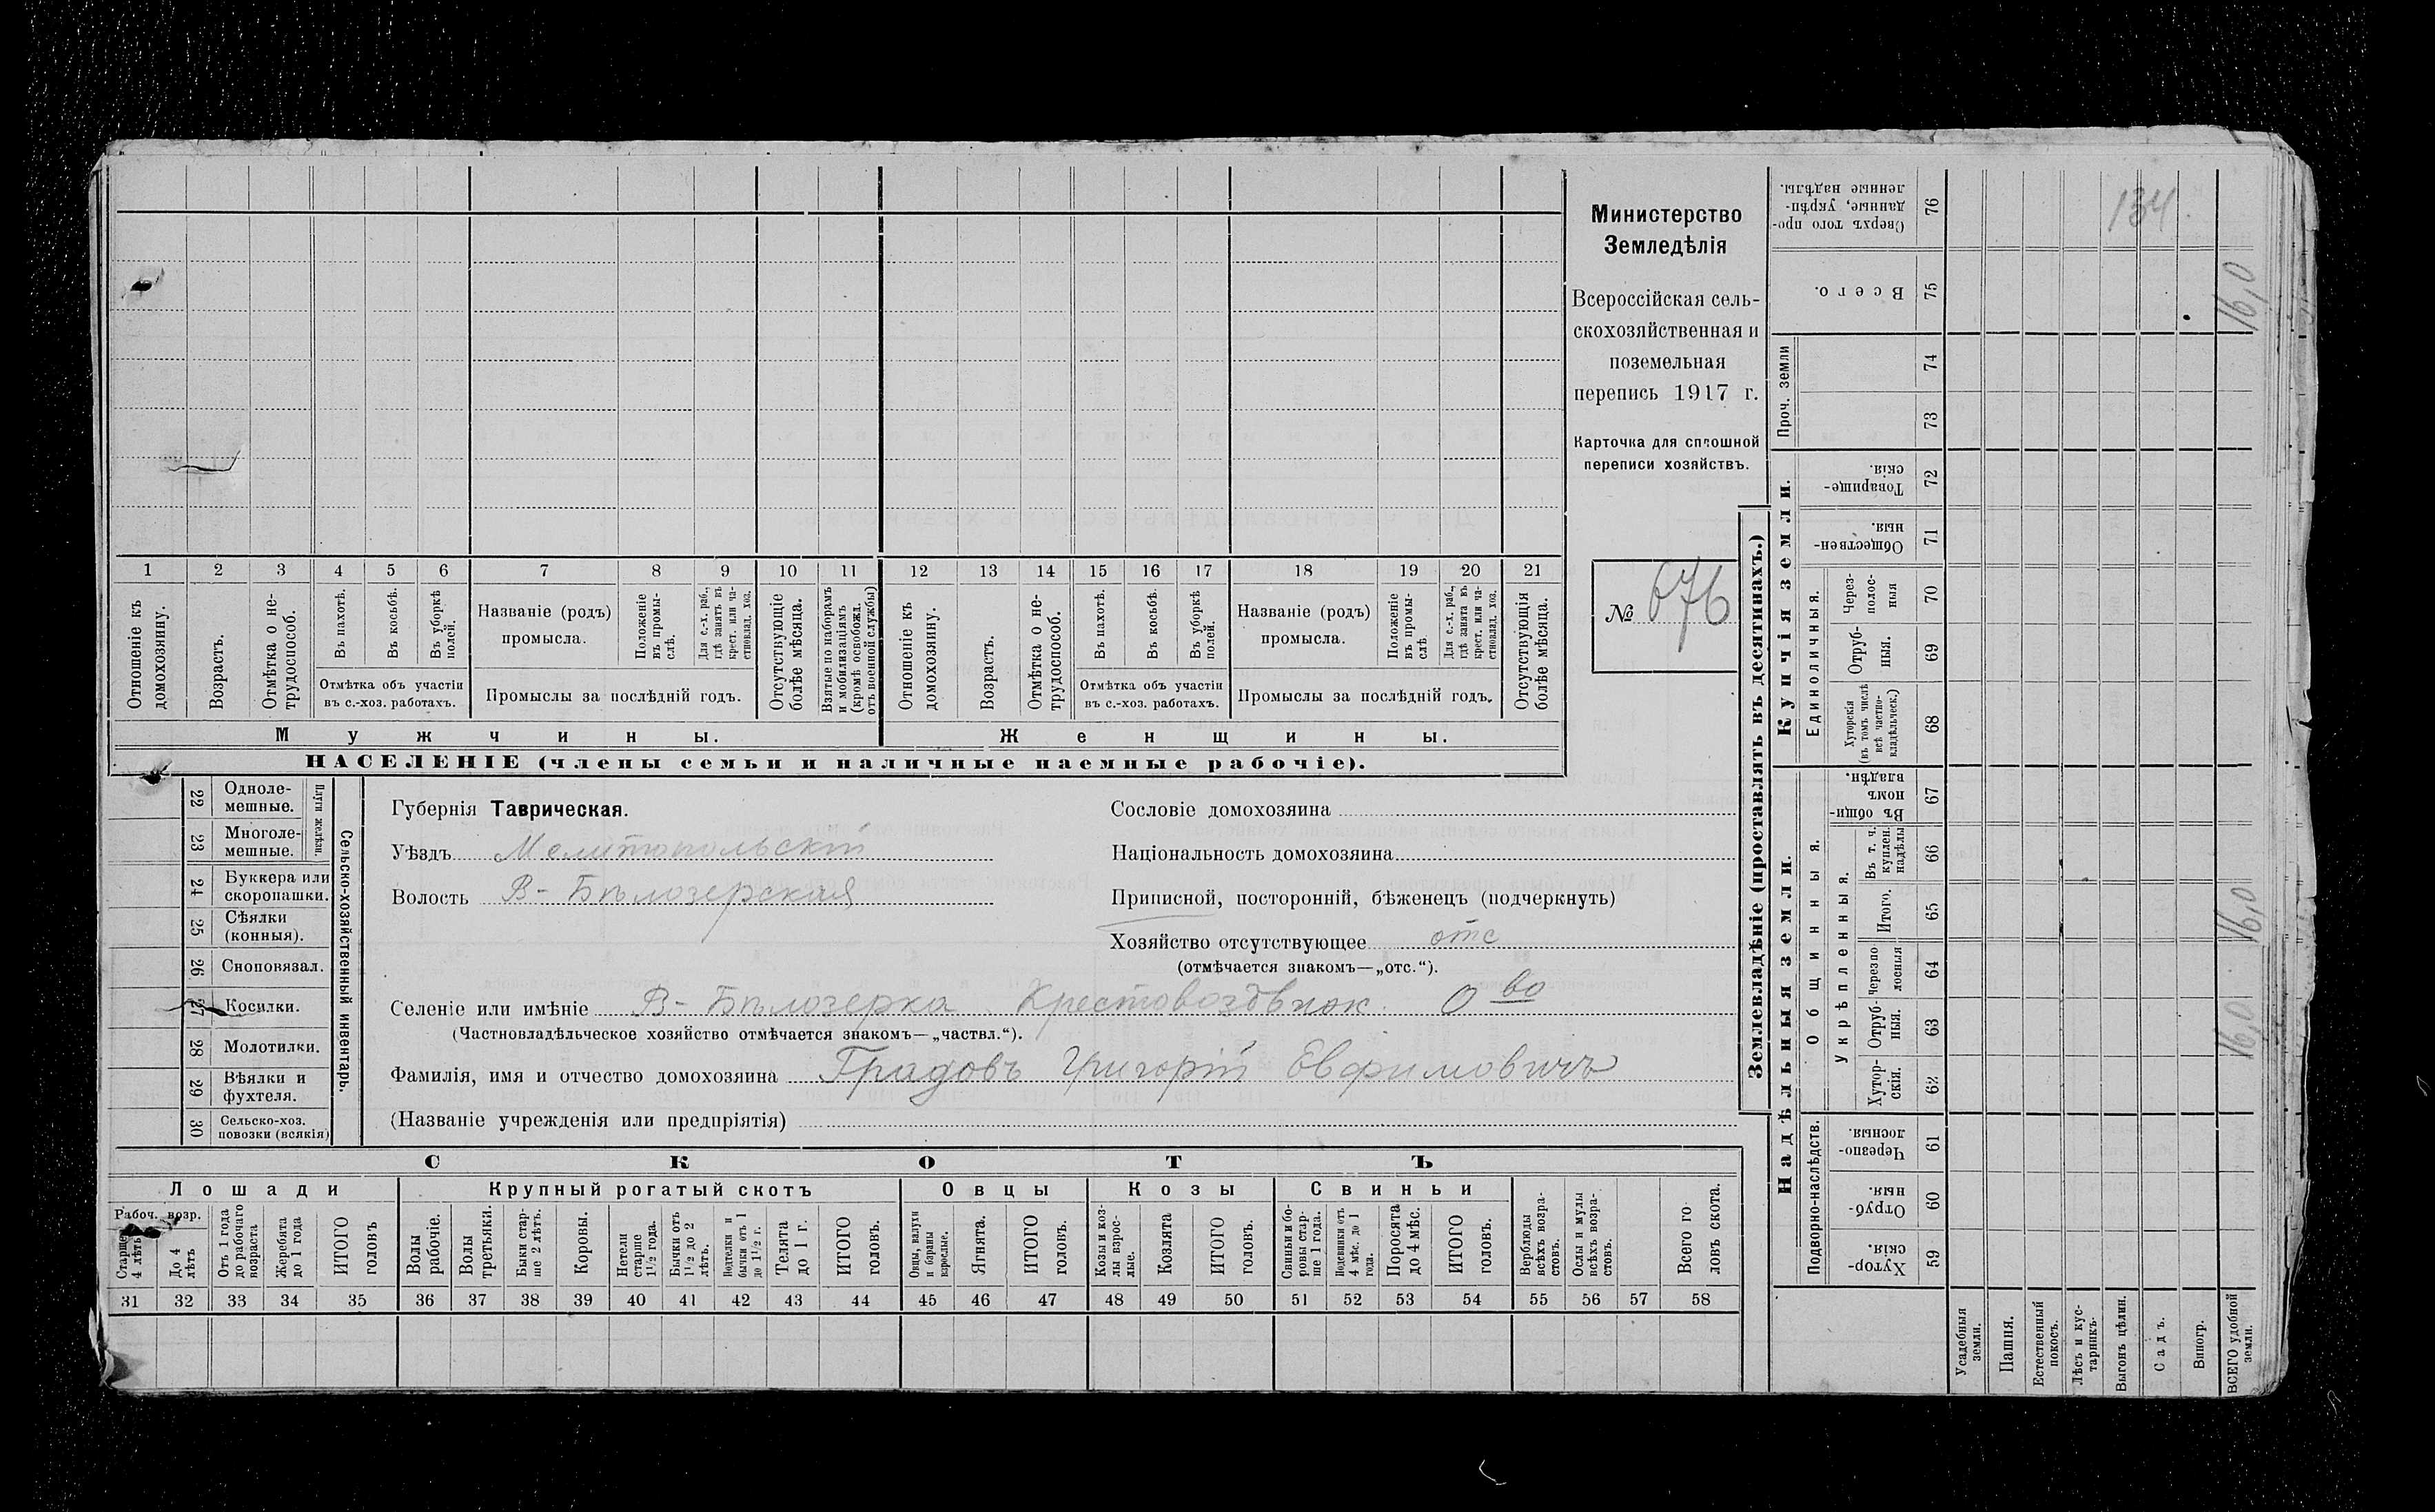 Министерство
Земледѣлія
Всероссійская сель-
скохозяйственная и
поземельная
перепись 1917 г.
Карточка для сплошной
переписи хозяйствъ.
№ 676
1 2 3 4 5 6 7 8 9 10 11 12 13 14 15 16 17 18 19 20 21
Отношеніе къ домохозяину.
Возрастъ.
Отмѣтка о не-
трудоспособ.
Въ пахотѣ.
Въ косьбѣ.
Въ уборкѣ полей.
Отмѣтка объ участіи
въ с.-хоз. работахъ.
Названіе (родъ)
промысла.
Положеніе
въ промы-
слѣ.
Для с.-х. раб.,
гдѣ занятъ въ
крест. или ча-
стновлад. хоз.
Промыслы за послѣдній годъ.
Отсутствующіе
болѣе мѣсяца.
Взятые по наборамъ
и мобилизаціямъ
(кромѣ освобожд.
отъ военной службы)
Отношеніе къ
домохозяину.
Возрастъ.
Отмѣтка о не-
трудоспособ.
Въ пахотѣ.
Въ косьбѣ.
Въ уборкѣ
полей.
Отмѣтка объ участіи
въ с.-хоз. работахъ.
Названіе (родъ)
промысла.
Положеніе
въ промы-
слѣ.
Для с.-х. раб.,
гдѣ занята въ
крест. или ча-
стновлад. хоз.
Промыслы за послѣдній годъ.
Отсутствующія
болѣе мѣсяца.
Мужчины.
Женщины.
НАСЕЛЕНІЕ (члены семьи и наличные наемные рабочіе).
22 Одноле-
мешные.
23 Многоле-
мешные.
Плуги желѣзн.
24 Буккера или
скоропашки.
25 Сѣялки
(конныя).
26 Сноповязал.
27 Косилки.
28 Молотилки.
29 Вѣялки и
фухтеля.
30 Сельско-хоз.
повозки (всякія)
Сельско-хозяйственный инвентарь.
Губернія Таврическая.
Уѣздъ Мелитопольскій
Волость В-Бѣлозерская
Сословіе домохозяина
Національность домохозяина
Приписной, посторонній, бѣженецъ (подчеркнуть)
Хозяйство отсутствующее отс
(отмѣчается знакомъ—„отс.“).
Селеніе или имѣніе В-Бѣлозерка Крестовоздвиж. О во
(Частновладѣльческое хозяйство отмѣчается знакомъ—„частвл.“).
Фамилія, имя и отчество домохозяина Градовъ Григорій Евфимовичъ
(Названіе учрежденія или предпріятія)
СКОТЪ
Лошади
Крупный рогатый скотъ
Овцы
Козы
Свиньи
Рабоч. возр.
Старше
4 лѣтъ
До 4
лѣтъ
Отъ 1 года
до рабочаго
возраста
Жеребята
до 1 года
ИТОГО
головъ
Волы
рабочіе.
Волы
третьяки.
Быки стар-
ше 2 лѣтъ.
Коровы.
Нетели
старше
1½ года.
Бычки отъ
1½ до 2
лѣтъ.
Подтелки и
бычки отъ 1
до 1½ г.
Телята
до 1 г.
ИТОГО
головъ.
Овцы, валухи
и бараны
взрослые.
Ягнята.
ИТОГО
головъ.
Козы и коз-
лы взрос-
лые.
Козлята
ИТОГО
головъ.
Свиньи и бо-
ровы стар-
ше 1 года.
Подсвинки отъ
4 мѣс. до 1
года.
Поросята
до 4 мѣс.
ИТОГО
головъ.
Верблюды
всѣхъ возра-
стовъ.
Ослы и мулы
всѣхъ возра-
стовъ.
Всего го
ловъ скота.
31 32 33 34 35 36 37 38 39 40 41 42 43 44 45 46 47 48 49 50 51 52 53 54 55 56 57 58
Землевладѣніе (проставлять въ десятинахъ.)
Надѣльныя земли.
Купчія земли.
Проч. земли
Подворно-наслѣдств.
Общинныя.
Укрѣпленныя.
Единоличныя.
Сверхъ того про-
данные, укрѣп-
ленные надѣлы.
76
134
Всего.
75
16,0
74
73
Товарище-
скія.
72
Обществен-
ныя.
71
Через-
полос-
ныя
70
Отруб-
ныя.
69
Хуторскія
(въ томъ числѣ
всѣ частно-
владѣльческ.)
68
Въ общин-
номъ
владѣн.
67
Въ т. ч.
куплен.
надѣлы
66
Итого.
65
16,0
Черезпо
лосныя
64
Отруб-
ныя.
63
16,0
Хутор-
скія.
62
Черезпо-
лосныя.
61
Отруб-
ныя.
60
Хутор-
скія.
59
Усадебныя
земли.
Пашня.
Естественный
покосъ.
Лѣсъ и кус-
тарникъ.
Выгонъ цѣлин.
Садъ.
Виногр.
ВСЕГО удобной
земли.